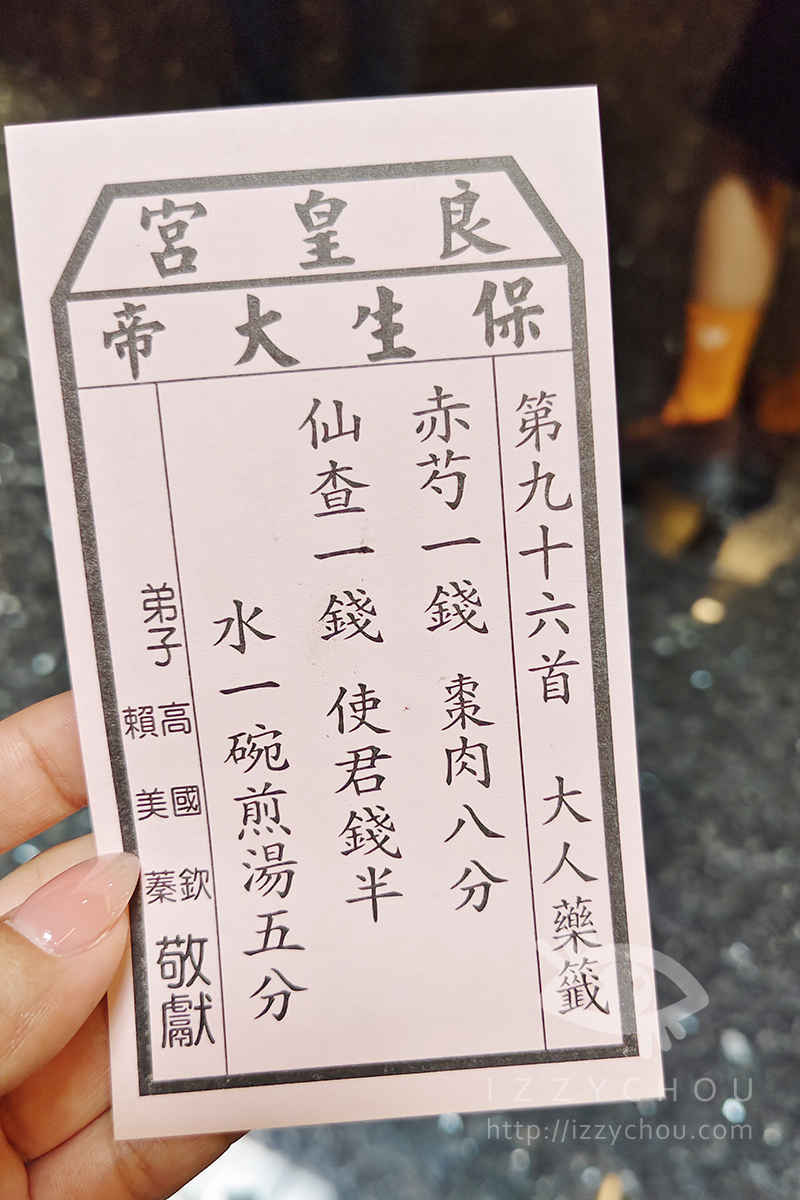 良皇宮
保生大帝
第九十六首 大人藥籤
赤芍一錢 棗肉八分
仙查一錢 使君錢半
水一碗煎湯五分
弟子 高國欽 賴美蓁 敬獻
IZZYCHOU
http://izzychou.com